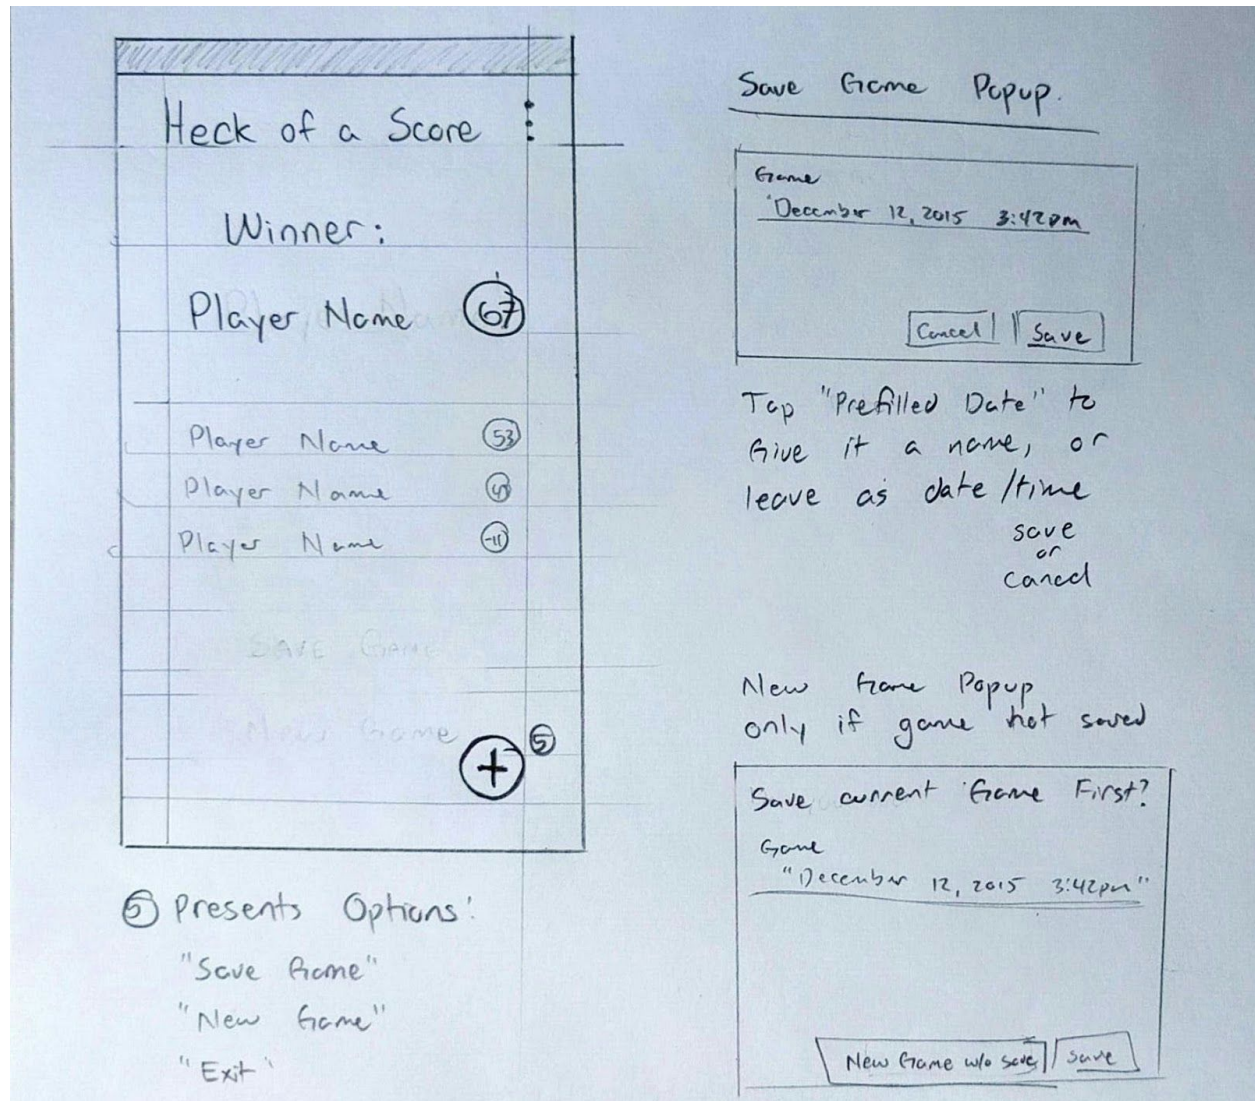 Heck of a Score
Winner:
Player Name 67
Player Name 53
Player Name
Player Name -11
SAVE GAME
New Game
5
+
5 Presents Options:
"Save Game"
"New Game"
"Exit"
Save Game Popup.
Game
"December 12, 2015 3:42pm
Cancel Save
Tap "Prefilled Date" to
Give it a name, or
leave as date/time
save
or
cancel
New Game Popup
only if game not saved
Save current Game First?
Game
"December 12, 2015 3:42pm"
New Game w/o save Save